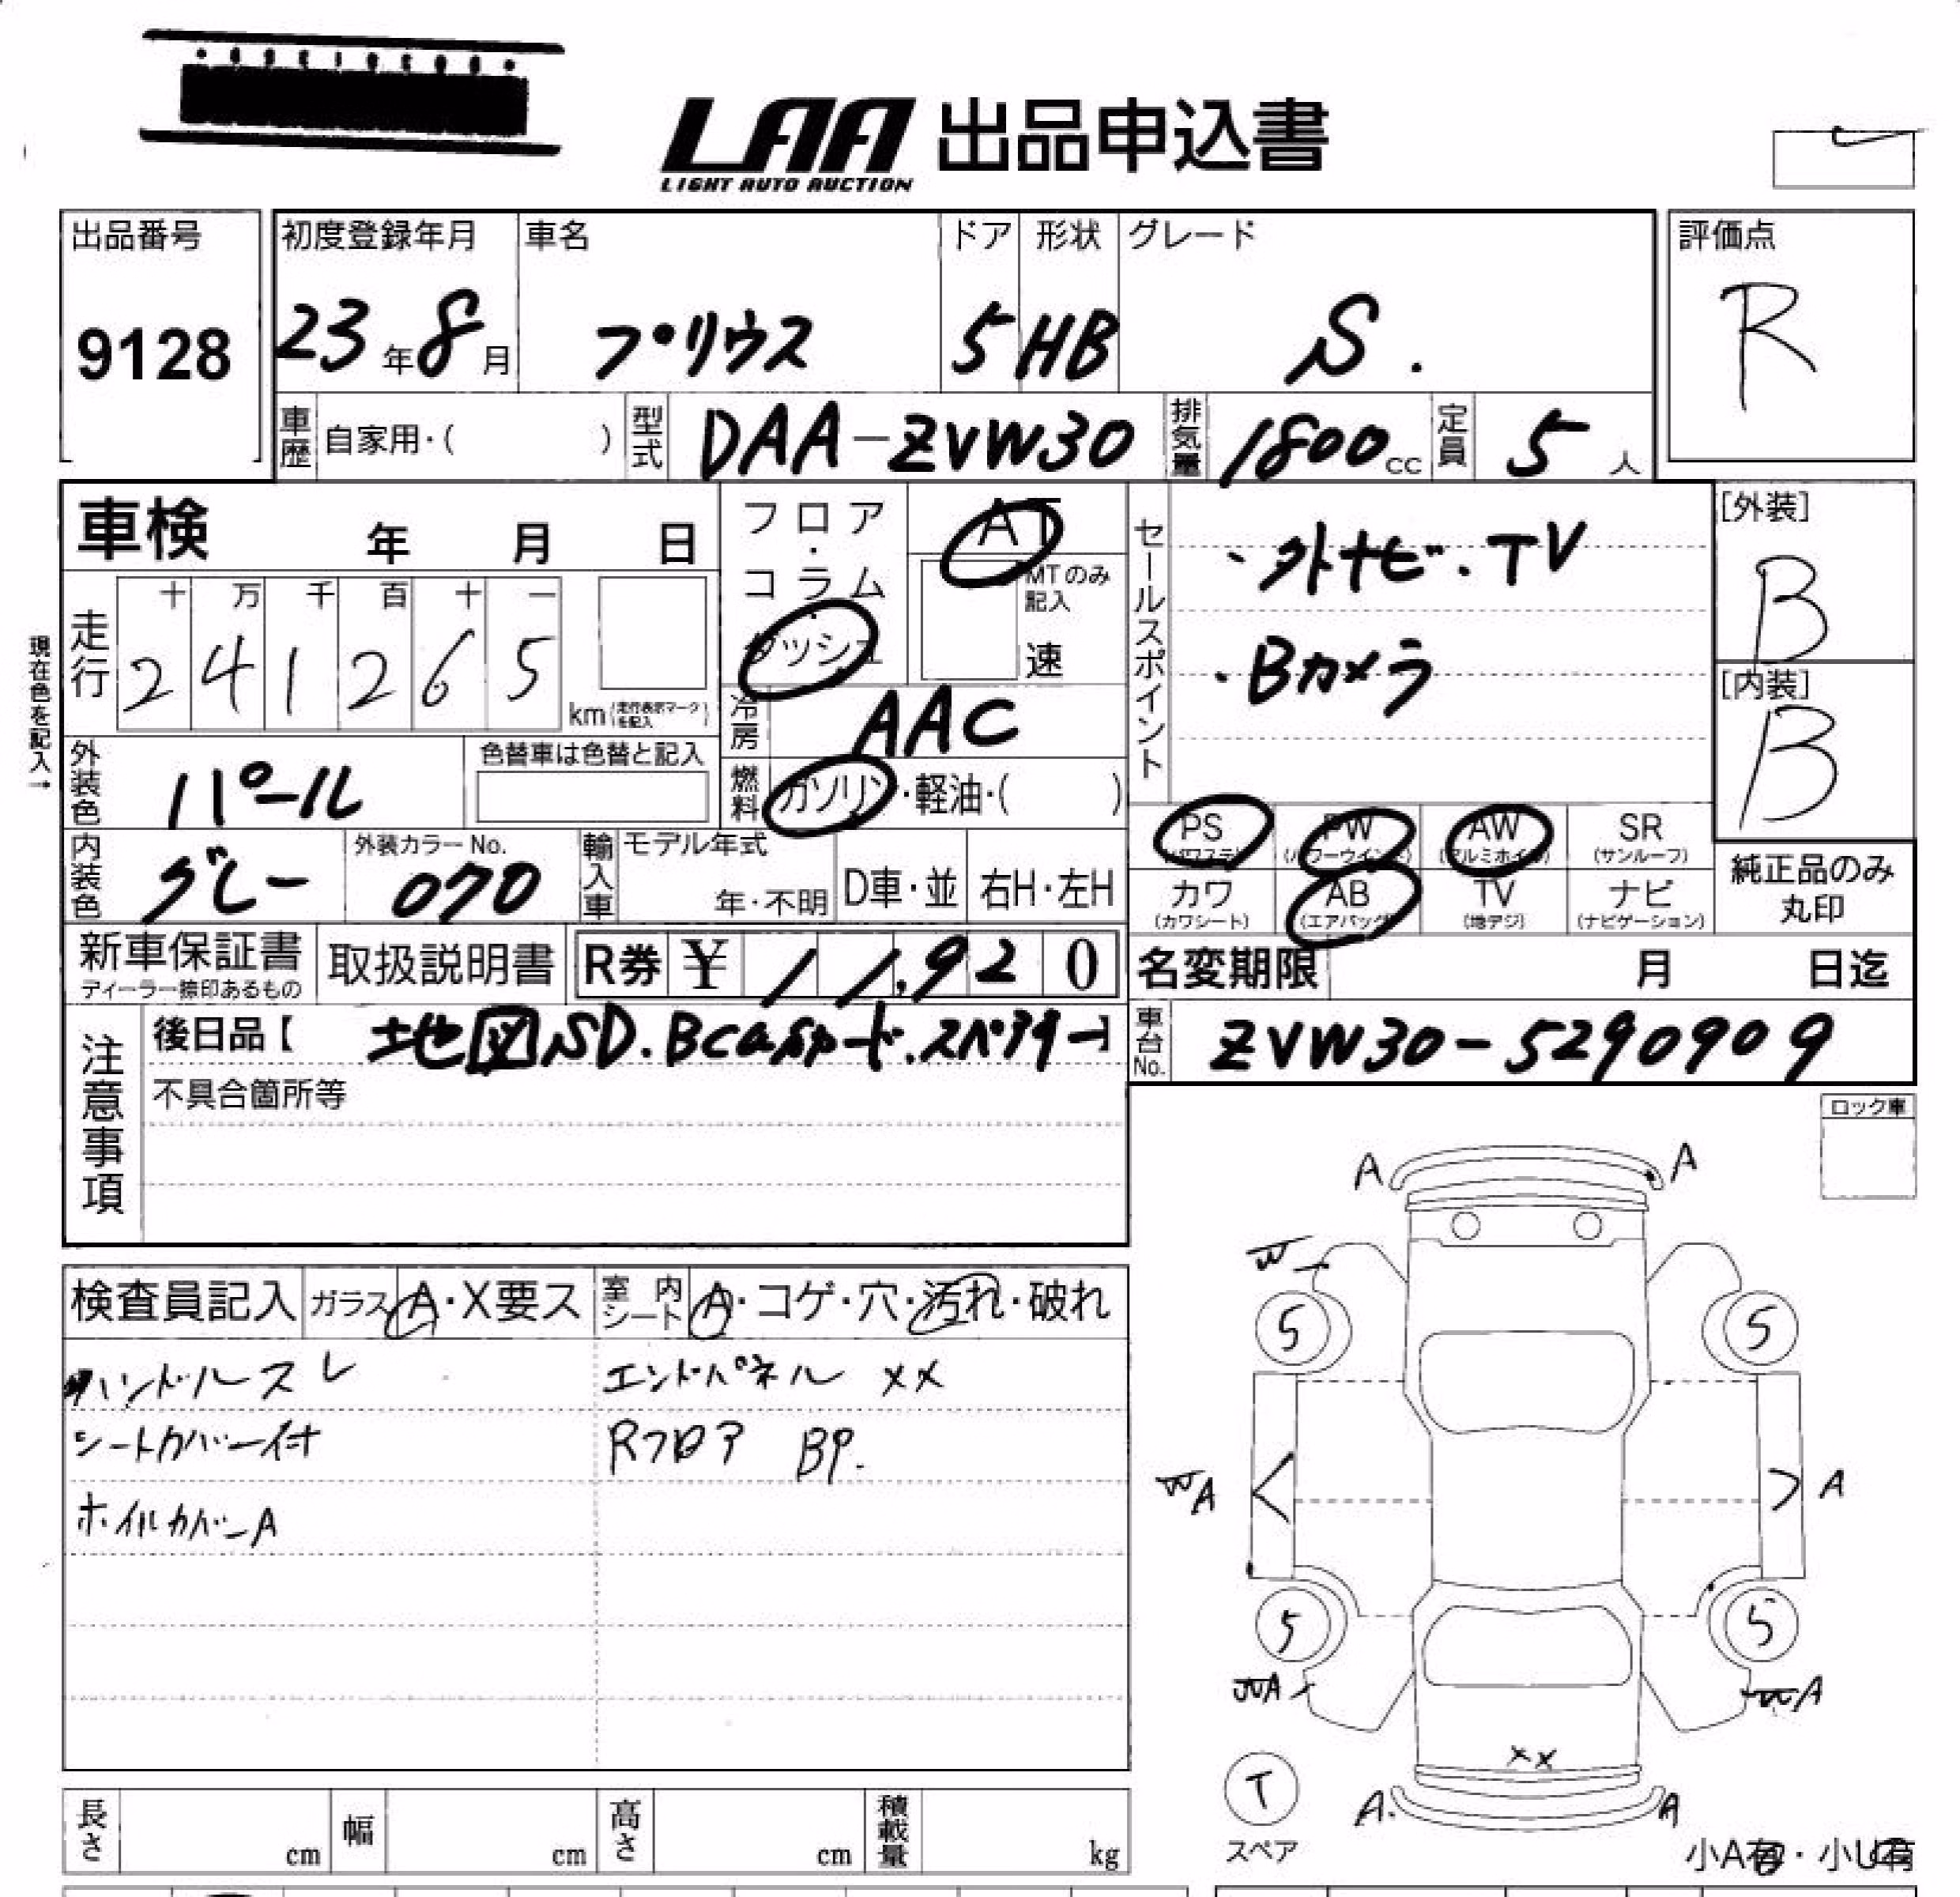 LAA 出品申込書
LIGHT AUTO AUCTION
出品番号 初度登録年月 車名 ドア 形状 グレード 評価点
9128 23年8月 プリウス 5 HB S. R
車歴 自家用・( ) 型式 DAA-ZVW30 排気量 1800cc 定員 5人
車検 年 月 日
フロア・コラム・ダッシュ
AT
MTのみ記入
速
セールスポイント
・外ナビ.TV
・Bカメラ
[外装]
B
[内装]
B
現在色を記入→
走行 十 万 千 百 十 一
2 4 1 2 6 5
km(走行表示マークを記入)
冷房 AAC
外装色 パール 色替車は色替と記入
燃料 ガソリン・軽油・( )
内装色 グレー 外装カラーNo. 070
輸入車 モデル年式 年・不明 D車・並 右H・左H
PS (パワステ) PW (パワーウインド) AW (アルミホイル) SR (サンルーフ)
カワ (カワシート) AB (エアバッグ) TV (地デジ) ナビ (ナビゲーション)
純正品のみ丸印
新車保証書 ディーラー捺印あるもの 取扱説明書 R券 ¥ 11,920
名変期限 月 日迄
注意事項
後日品【 地図SD.Bcasカード.スペアキー】
車台No. ZVW30-5290909
不具合箇所等
ロック車
A A
W
5 5
検査員記入 ガラス A・X要ス 室内シート A・コゲ・穴・汚れ・破れ
ハンドルスレ エンドパネル XX
シートカバー付 Rフロア BP.
ホイルカバーA
WA A
5 5
WA WA
XX
T
スペア
A. A
長さ cm 幅 cm 高さ cm 積載量 kg
小A有・小U有